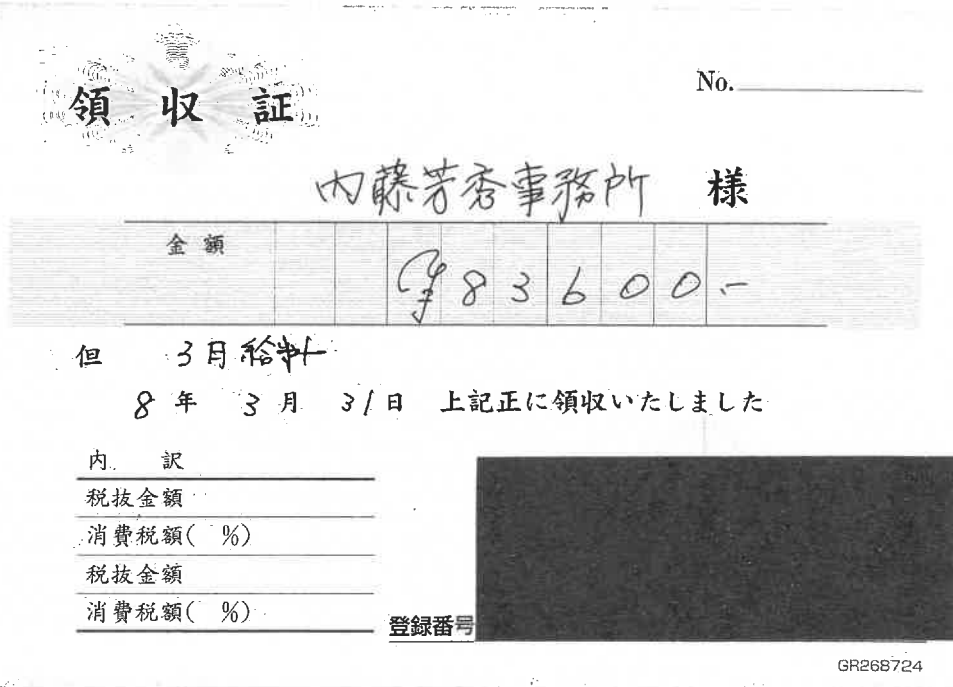 領収証
No.
内藤芳秀事務所 様
金額 ¥83600.-
但 3月給料
8年 3月 31日 上記正に領収いたしました
内 訳
税抜金額
消費税額( %)
税抜金額
消費税額( %)
登録番号
GR268724